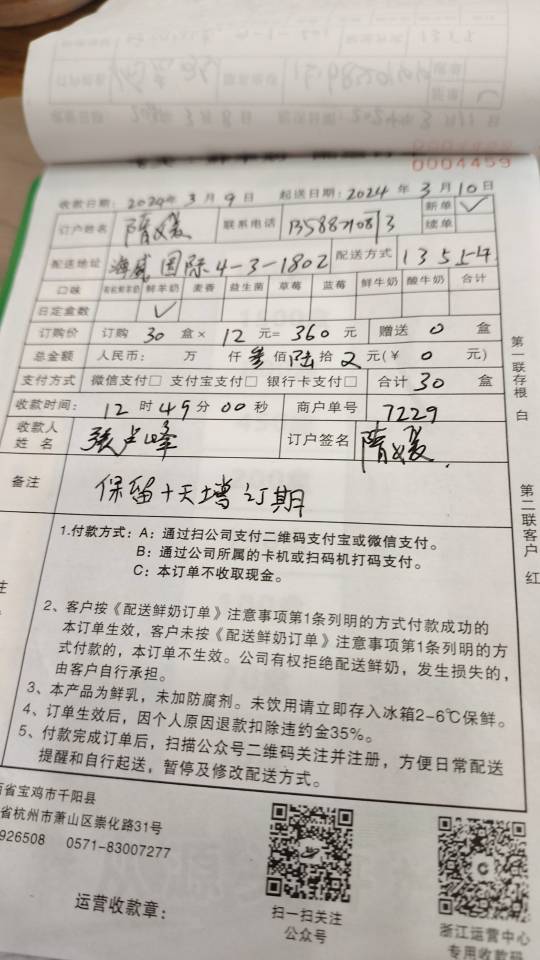 0004459
收款日期：2024年3月9日 起送日期：2024年3月10日
订户姓名 隋媛 联系电话 新单✓ 续单
配送地址 海威国际4-3-1802 配送方式 1 3 5
口味 鲜羊奶 麦香 益生菌 草莓 蓝莓 鲜牛奶 酸牛奶 合计
日定盒数 ✓
订购价 订购 30 盒× 12 元= 360 元 赠送 0 盒
总金额 人民币： 万 仟 叁 佰 陆 拾 元(￥ 0 元)
支付方式 微信支付□ 支付宝支付□ 银行卡支付□ 合计 30 盒
收款时间： 12 时 49 分 00 秒 商户单号 7229
收款人姓名 订户签名 隋媛
备注 保留十天增订期
第一联存根 白
第二联客户 红
1.付款方式：A：通过扫公司支付二维码支付宝或微信支付。
B：通过公司所属的卡机或扫码机打码支付。
C：本订单不收取现金。
2、客户按《配送鲜奶订单》注意事项第1条列明的方式付款成功的
本订单生效，客户未按《配送鲜奶订单》注意事项第1条列明的方
式付款的，本订单不生效。公司有权拒绝配送鲜奶，发生损失的，
由客户自行承担。
3、本产品为鲜乳，未加防腐剂。未饮用请立即存入冰箱2-6℃保鲜。
4、订单生效后，因个人原因退款扣除违约金35%。
5、付款完成订单后，扫描公众号二维码关注并注册，方便日常配送
提醒和自行起送，暂停及修改配送方式。
西省宝鸡市千阳县
省杭州市萧山区崇化路31号
926508 0571-83007277
运营收款章：
扫一扫关注
公众号
浙江运营中心
专用收款码